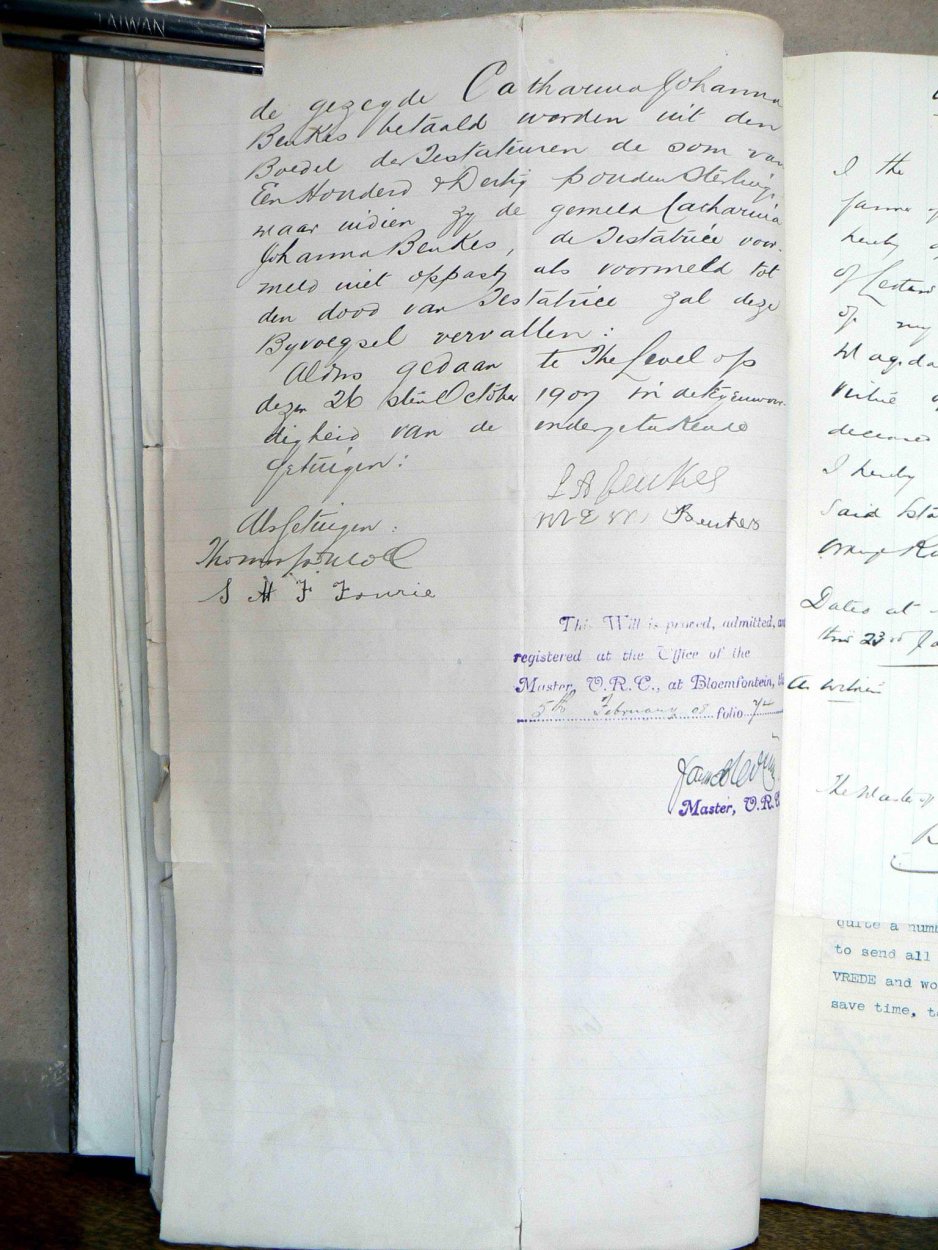 TAIWAN
de gezegde Catharina Johanna
Beukes betaald worden uit den
Boedel der Testateuren de som van
Een Honderd & Dertig ponden Sterling,
maar indien zy de gemeld Catharina
Johanna Beukes, de Testatrice voor-
meld niet oppast, als voormeld tot
den dood van Testatrice zal deze
Byvoegsel vervallen:
Aldus gedaan te The Level op
dezen 26 sten October 1907 in de tegenwoor-
digheid van de ondergetekende
getuigen:
Beukes
M E M Beukes
Als Getuigen:
Thomas
S H F Fourie
This Will is proved, admitted, an
registered at the Office of the
Master, O.R.C., at Bloemfontein, th
5th February 08 folio
Master, O.R.C
I the
farmer of
hereby
of
of my
Magda
virtue of
deceased
I hereby
said Esta
Orange Ri
Dated at
this 23rd Ja
As witness
The Master of
quite a numb
to send all
VREDE and wo
save time, t